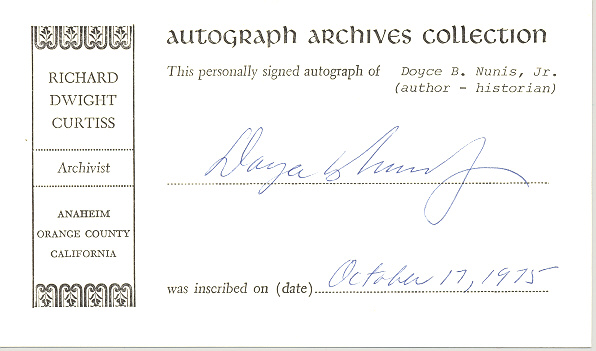 AUTOGRAPH ARCHIVES COLLECTION
This personally signed autograph of Doyce B. Nunis, Jr.
(author - historian)
RICHARD
DWIGHT
CURTISS
Archivist
ANAHEIM
ORANGE COUNTY
CALIFORNIA
Doyce B Nunis Jr
was inscribed on (date) October 17, 1975